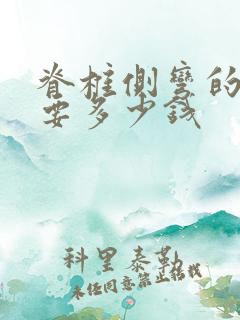 脊柱侧弯的
要多少钱
科里泰勒
未经同意禁止搭载